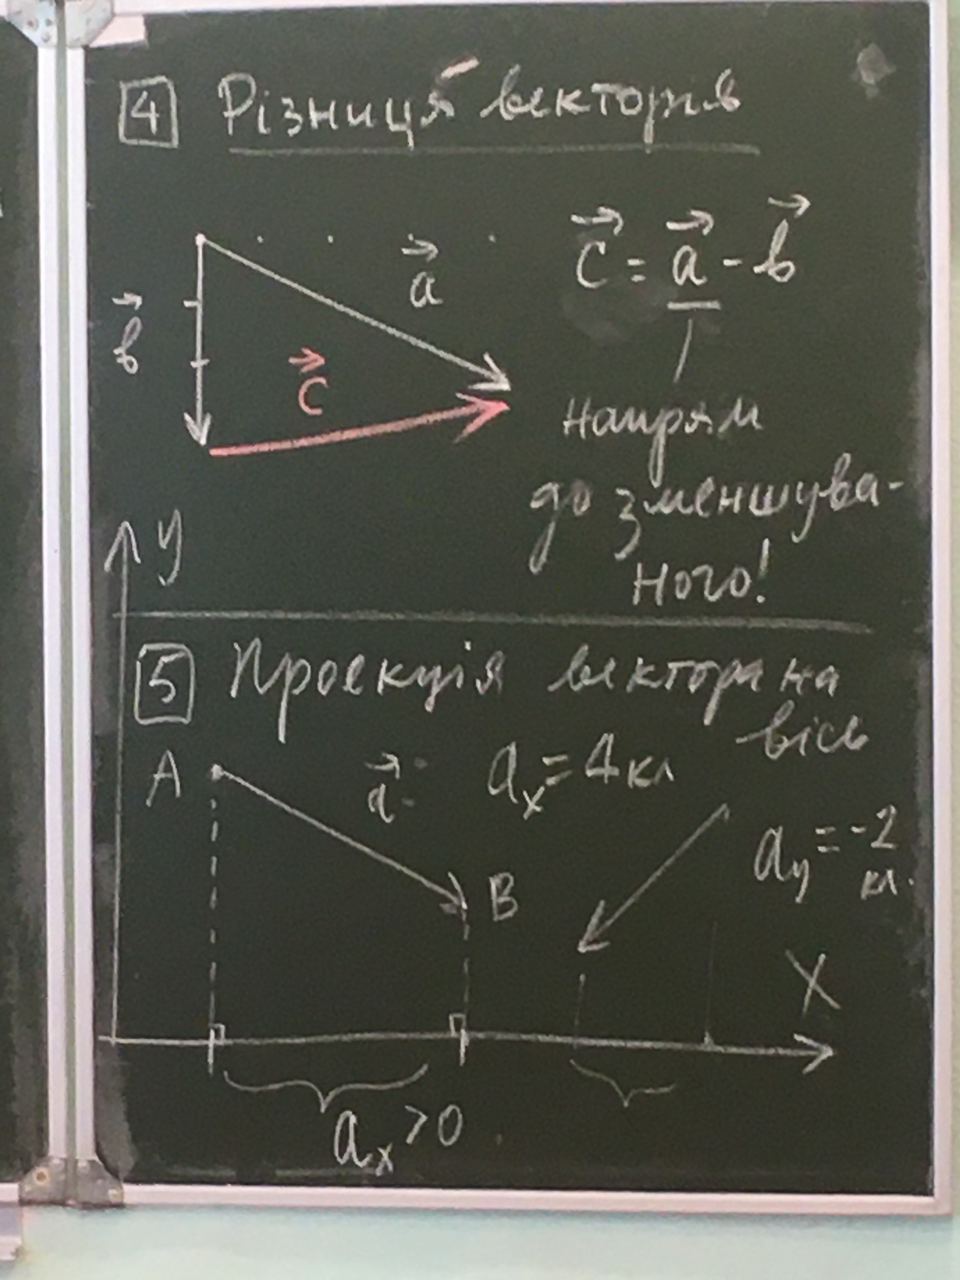 4 Різниця векторів
a⃗
c⃗ = a⃗ - в⃗
в⃗
c⃗
Напрям
до зменшува-
ного!
у
5 Проекція вектора на
вісь
A
a⃗
aₓ = 4 кл
B
aᵧ = -2
кл.
X
aₓ > 0